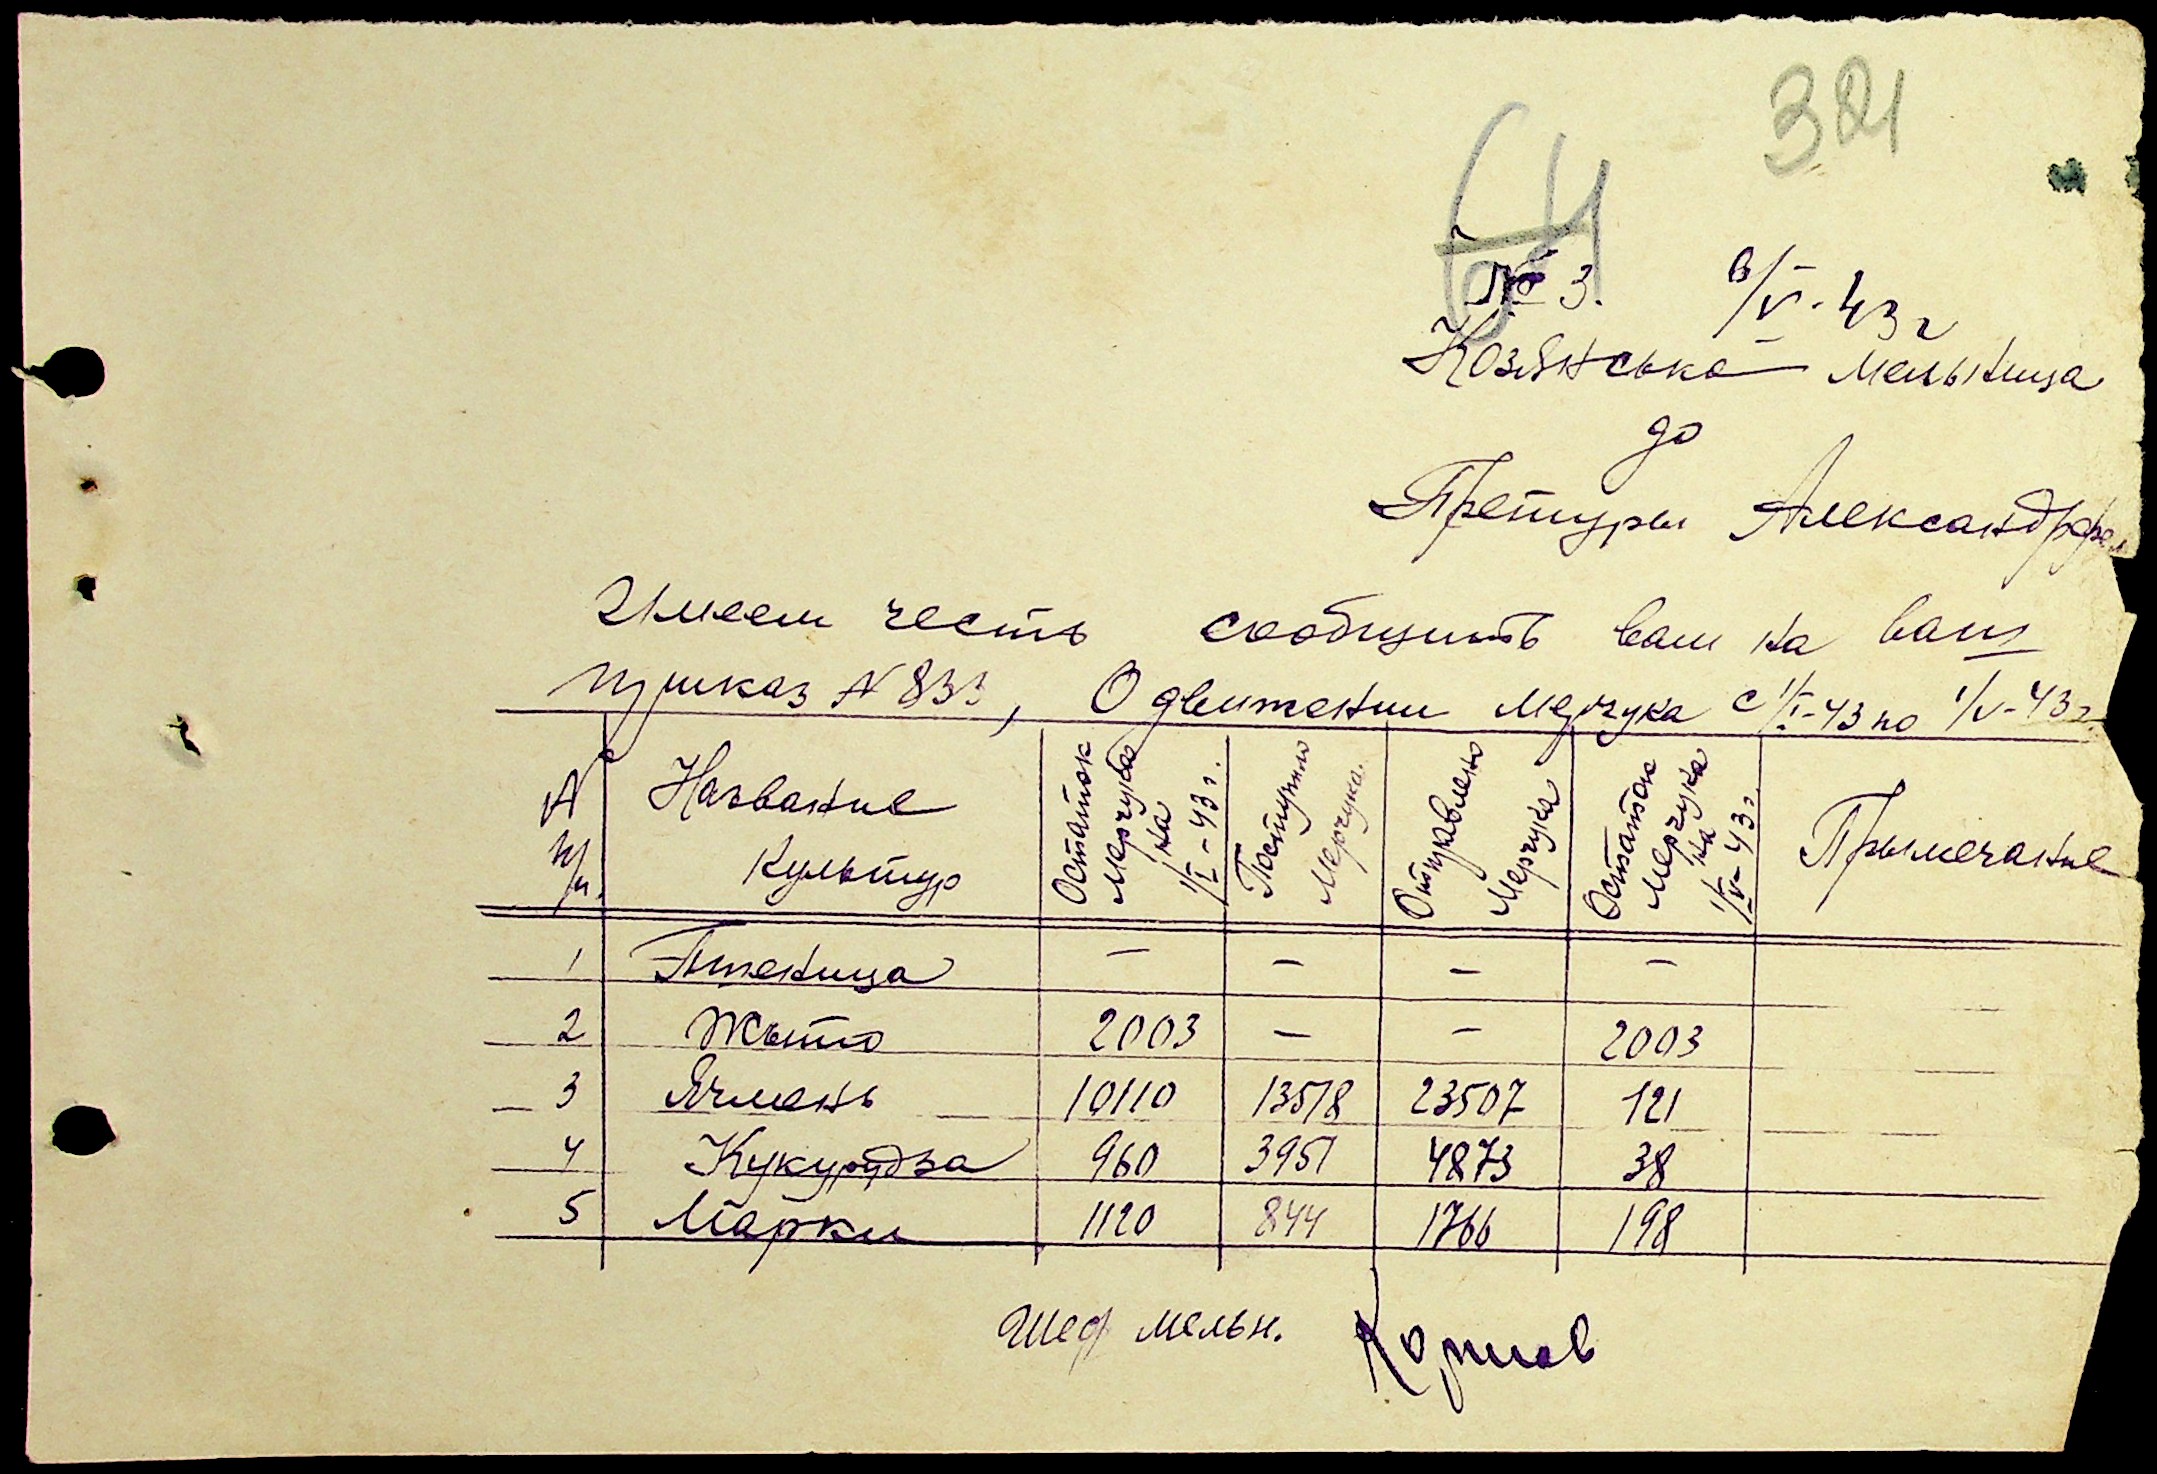 321
64
№ 3. 6/V-43 г
Козянська мельница
до
Претуры Александрфел
Имеем честь сообщить вам на ваш
приказ № 833, О движении мерчука с 1/I-43 по 1/V-43 г.
№ п/п. Название культур Остаток мерчука на 1/I-43 г. Поступило мерчука. Отправлено мерчука Остаток мерчука на 1/V-43 г. Прымечание
1 Пшеница — — — —
2 Жыто 2003 — — 2003
3 Ячмень 10110 13518 23507 121
4 Кукурудза 960 3951 4873 38
5 Марки 1120 844 1766 198
Шеф мельн.